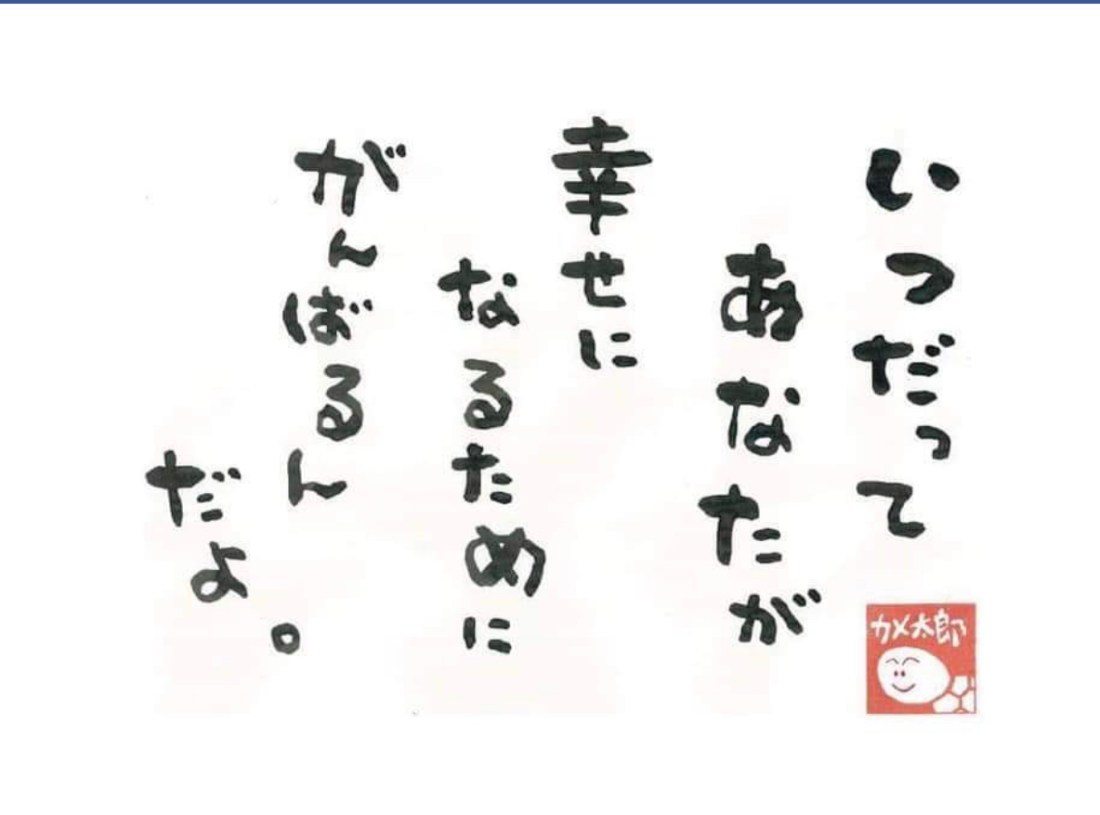 いつだって
あなたが
幸せに
なるために
がんばるん
だよ。
カメ太郎